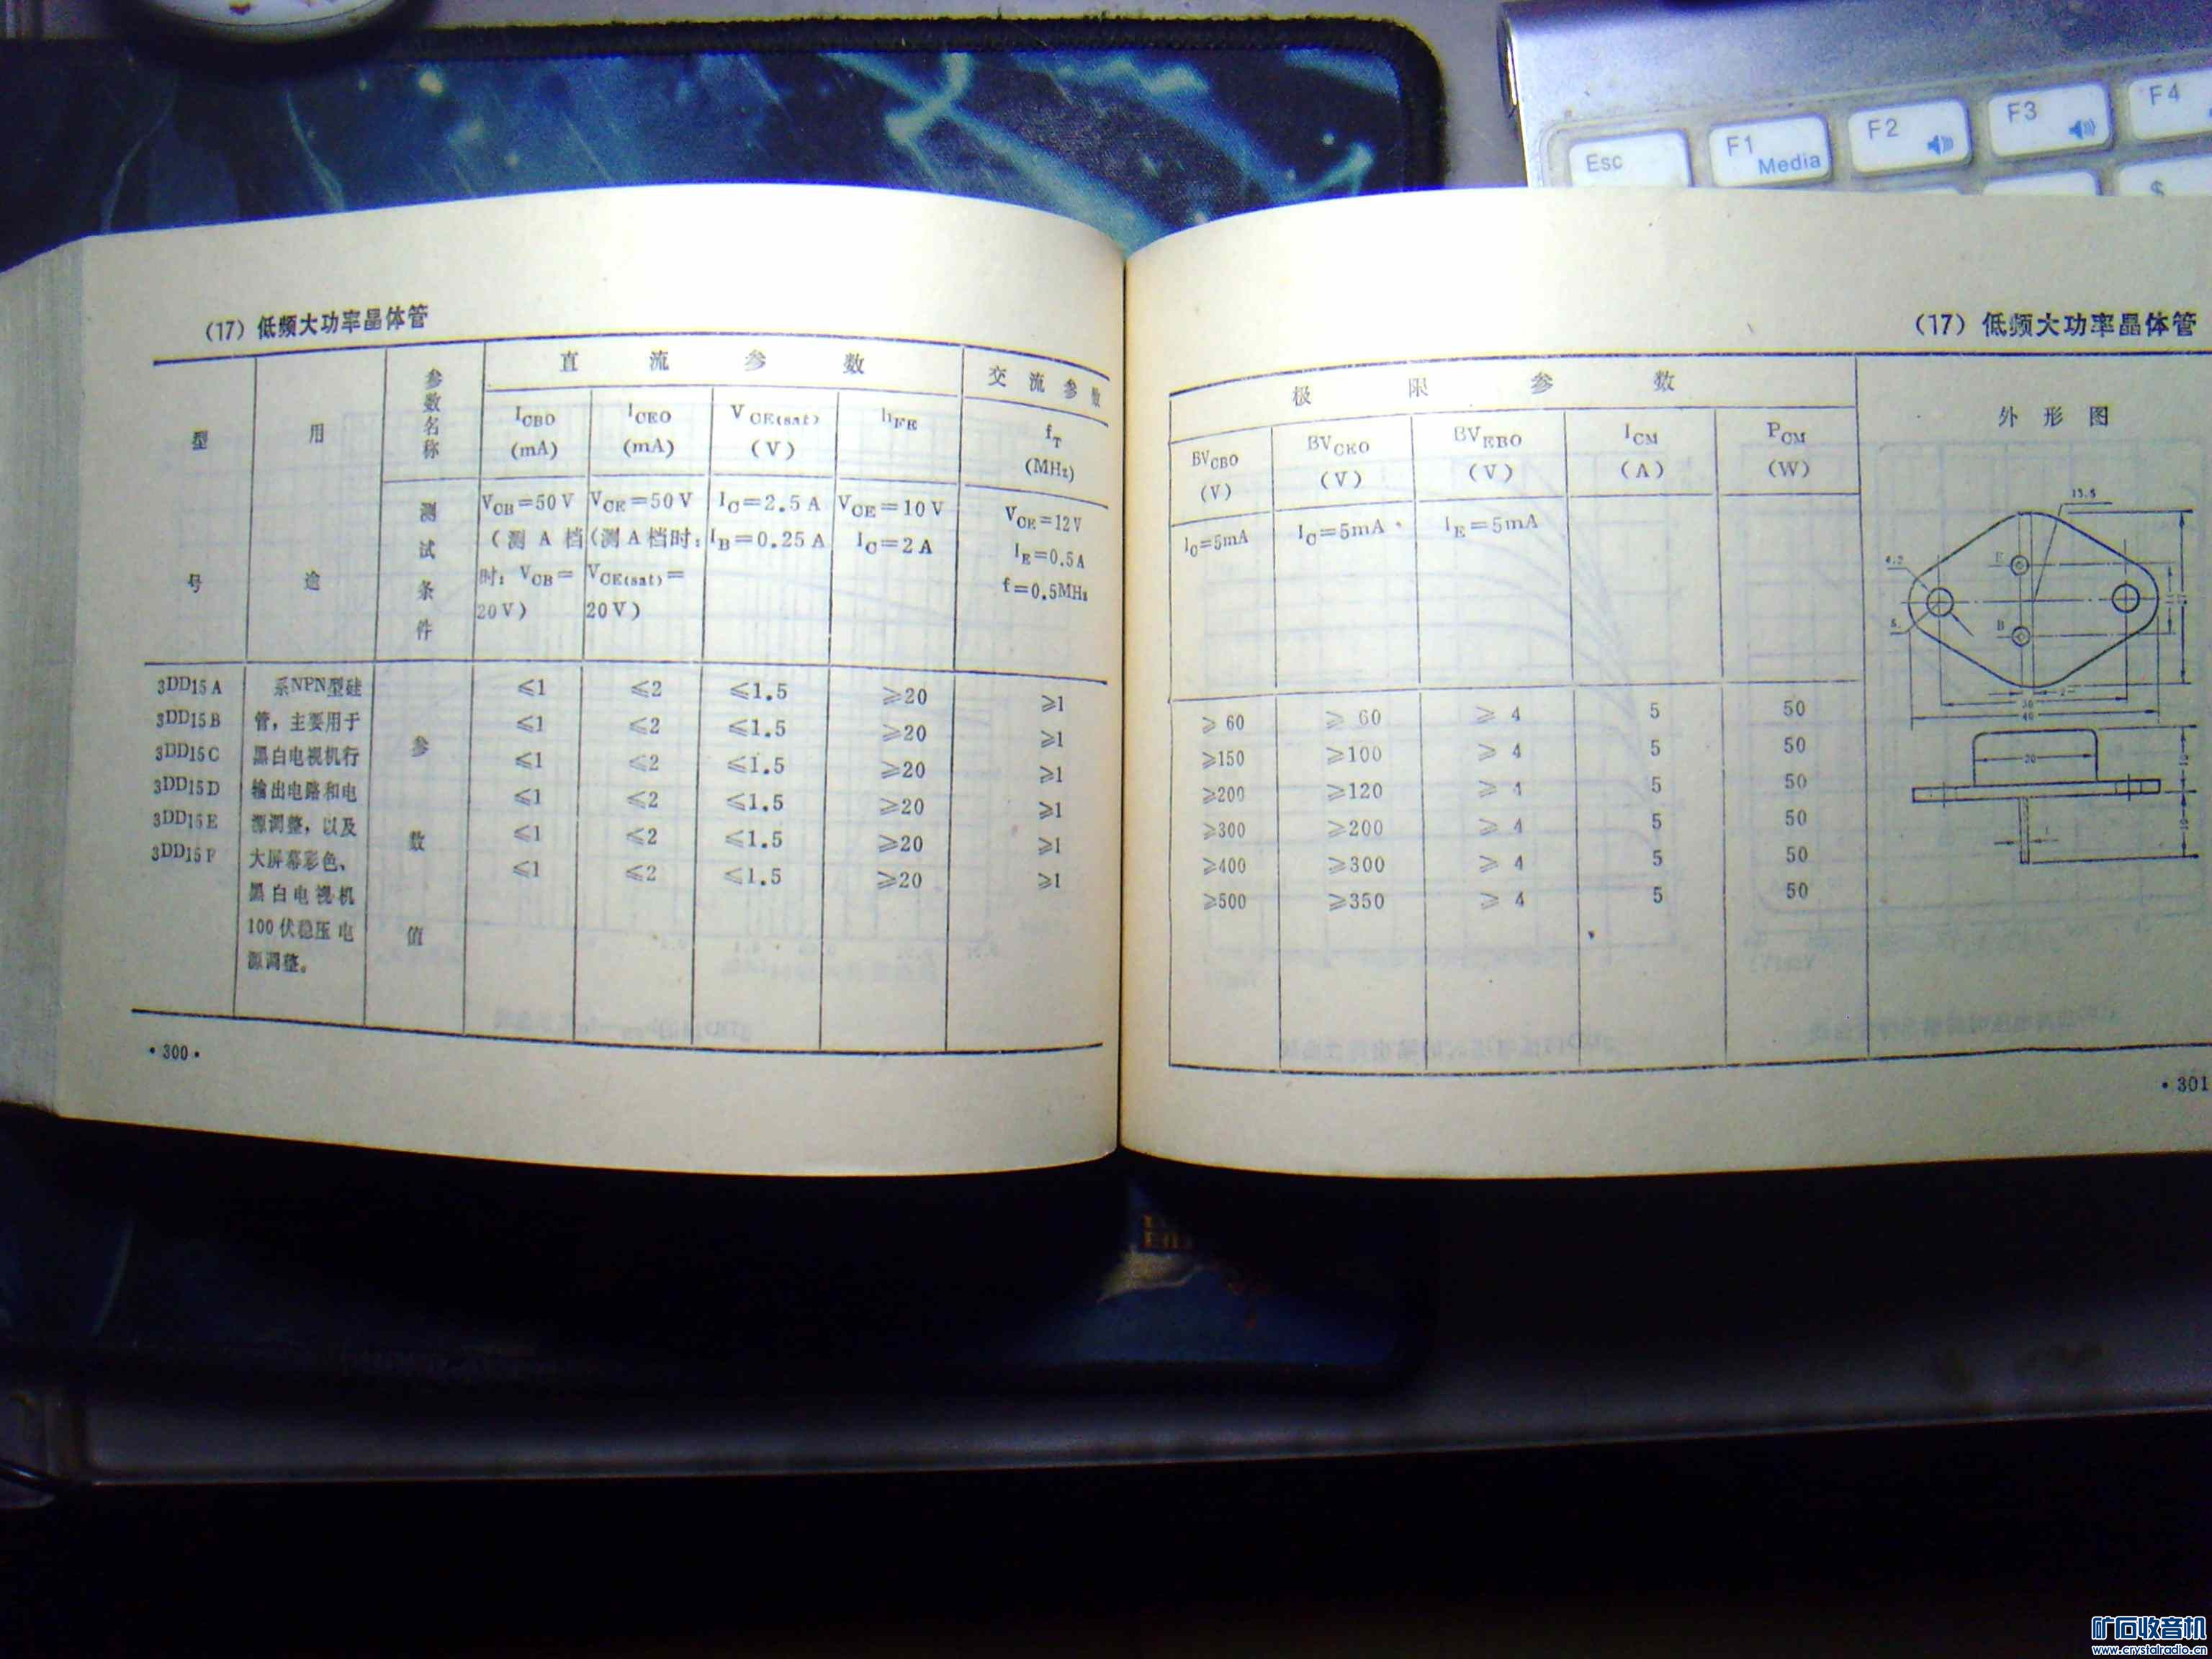 Esc
F1
Media
F2
F3
F4
$
(17) 低频大功率晶体管
型 号
用 途
参数名称
直 流 参 数
交 流 参 数
I_CBO (mA)
I_CEO (mA)
V_CE(sat) (V)
h_FE
f_T (MHz)
测试条件
V_CB=50V (测A档时: V_CB=20V)
V_CE=50V (测A档时: V_CE(sat)=20V)
I_C=2.5A I_B=0.25A
V_CE=10V I_C=2A
V_CE=12V I_E=0.5A f=0.5MHz
参 数 值
3DD15A ≤1 ≤2 ≤1.5 ≥20 ≥1
3DD15B ≤1 ≤2 ≤1.5 ≥20 ≥1
3DD15C ≤1 ≤2 ≤1.5 ≥20 ≥1
3DD15D ≤1 ≤2 ≤1.5 ≥20 ≥1
3DD15E ≤1 ≤2 ≤1.5 ≥20 ≥1
3DD15F ≤1 ≤2 ≤1.5 ≥20 ≥1
系NPN型硅
管，主要用于
黑白电视机行
输出电路和电
源调整，以及
大屏幕彩色、
黑白电视机
100伏稳压电
源调整。
·300·
(17) 低频大功率晶体管
极 限 参 数
外 形 图
BV_CBO (V)
BV_CEO (V)
BV_EBO (V)
I_CM (A)
P_CM (W)
I_C=5mA
I_C=5mA
I_E=5mA
≥60 ≥60 ≥4 5 50
≥150 ≥100 ≥4 5 50
≥200 ≥120 ≥4 5 50
≥300 ≥200 ≥4 5 50
≥400 ≥300 ≥4 5 50
≥500 ≥350 ≥4 5 50
13.5
4.2
E
B
30
40
20
·301
矿石收音机
www.crystalradio.cn